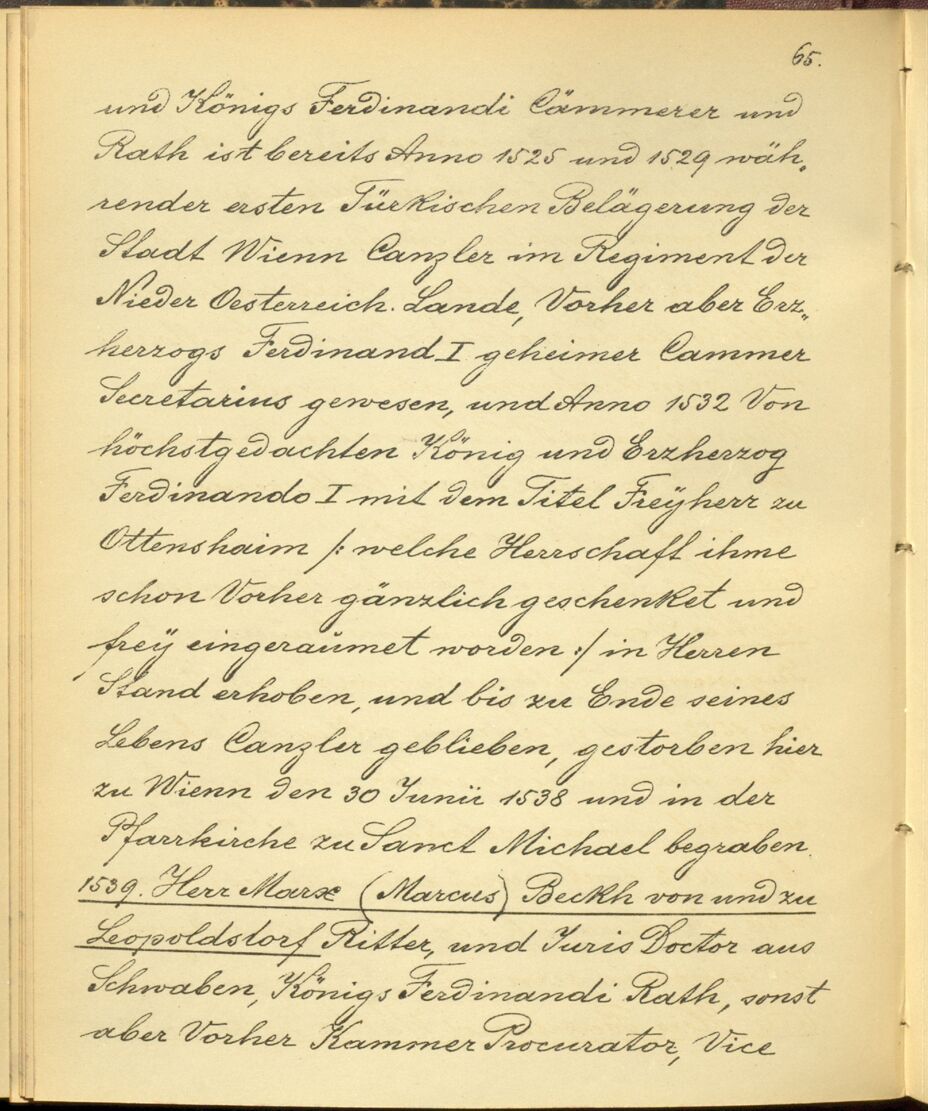 65.
und Königs Ferdinandi Cämmerer und
Rath ist bereits Anno 1525 und 1529 wäh„
render ersten Türkischen Belägerung der
Stadt Wienn Canzler im Regiment der
Nieder Oesterreich. Lande, Vorher aber Erz„
herzogs Ferdinand I geheimer Cammer
Secretarius gewesen, und Anno 1532 Von
höchstgedachten König und Erzherzog
Ferdinando I mit dem Titel Freÿherr zu
Ottenshaim /: welche Herrschaft ihme
schon Vorher gänzlich geschenket und
freÿ eingeraŭmet worden :/ in Herren
Stand erhoben, und bis zu Ende seines
Lebens Canzler geblieben, gestorben hier
zu Wienn den 30 Junii 1538 und in der
Pfarrkirche zu Sanct Michael begraben.
1539. Herr Marx (Marcus) Beckh von und zu
Leopoldstorf Ritter, und Juris Doctor aus
Schwaben, Königs Ferdinandi Rath, sonst
aber Vorher Kammer Procurator, Vice